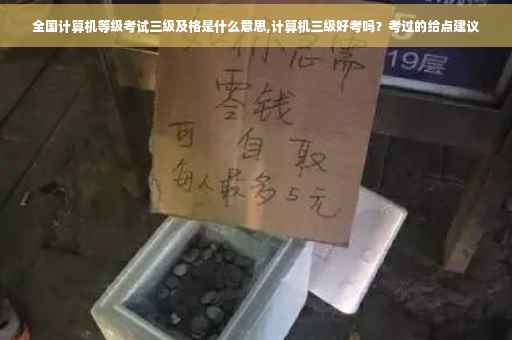 全国计算机等级考试三级及格是什么意思,计算机三级好考吗？考过的给点建议
你急需
零钱
可 自 取
每人最多5元
5
19层